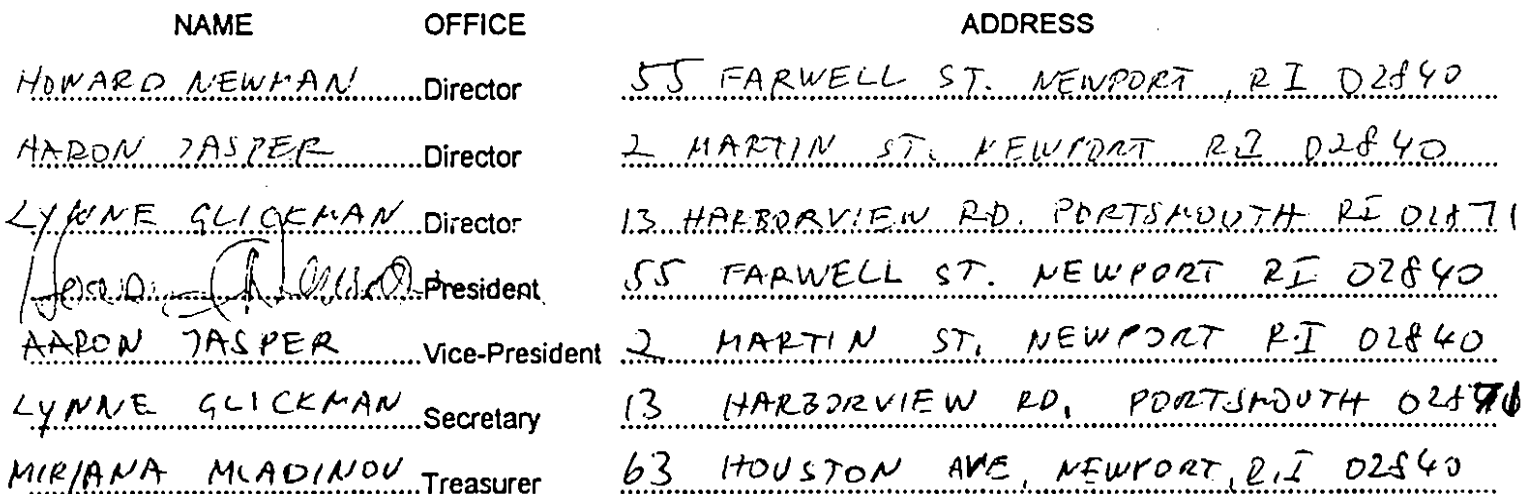 NAME OFFICE ADDRESS
HOWARD NEWMAN Director 55 FARWELL ST. NEWPORT, RI 02840
AARON JASPER Director 2 MARTIN ST. NEWPORT RI 02840
LYNNE GLICKMAN Director 13 HARBORVIEW RD. PORTSMOUTH RI 02871
President 55 FARWELL ST. NEWPORT RI 02840
AARON JASPER Vice-President 2 MARTIN ST. NEWPORT R.I 02840
LYNNE GLICKMAN Secretary 13 HARBORVIEW RD. PORTSMOUTH 02871
MIRJANA MLADINOV Treasurer 63 HOUSTON AVE, NEWPORT, R.I 02840